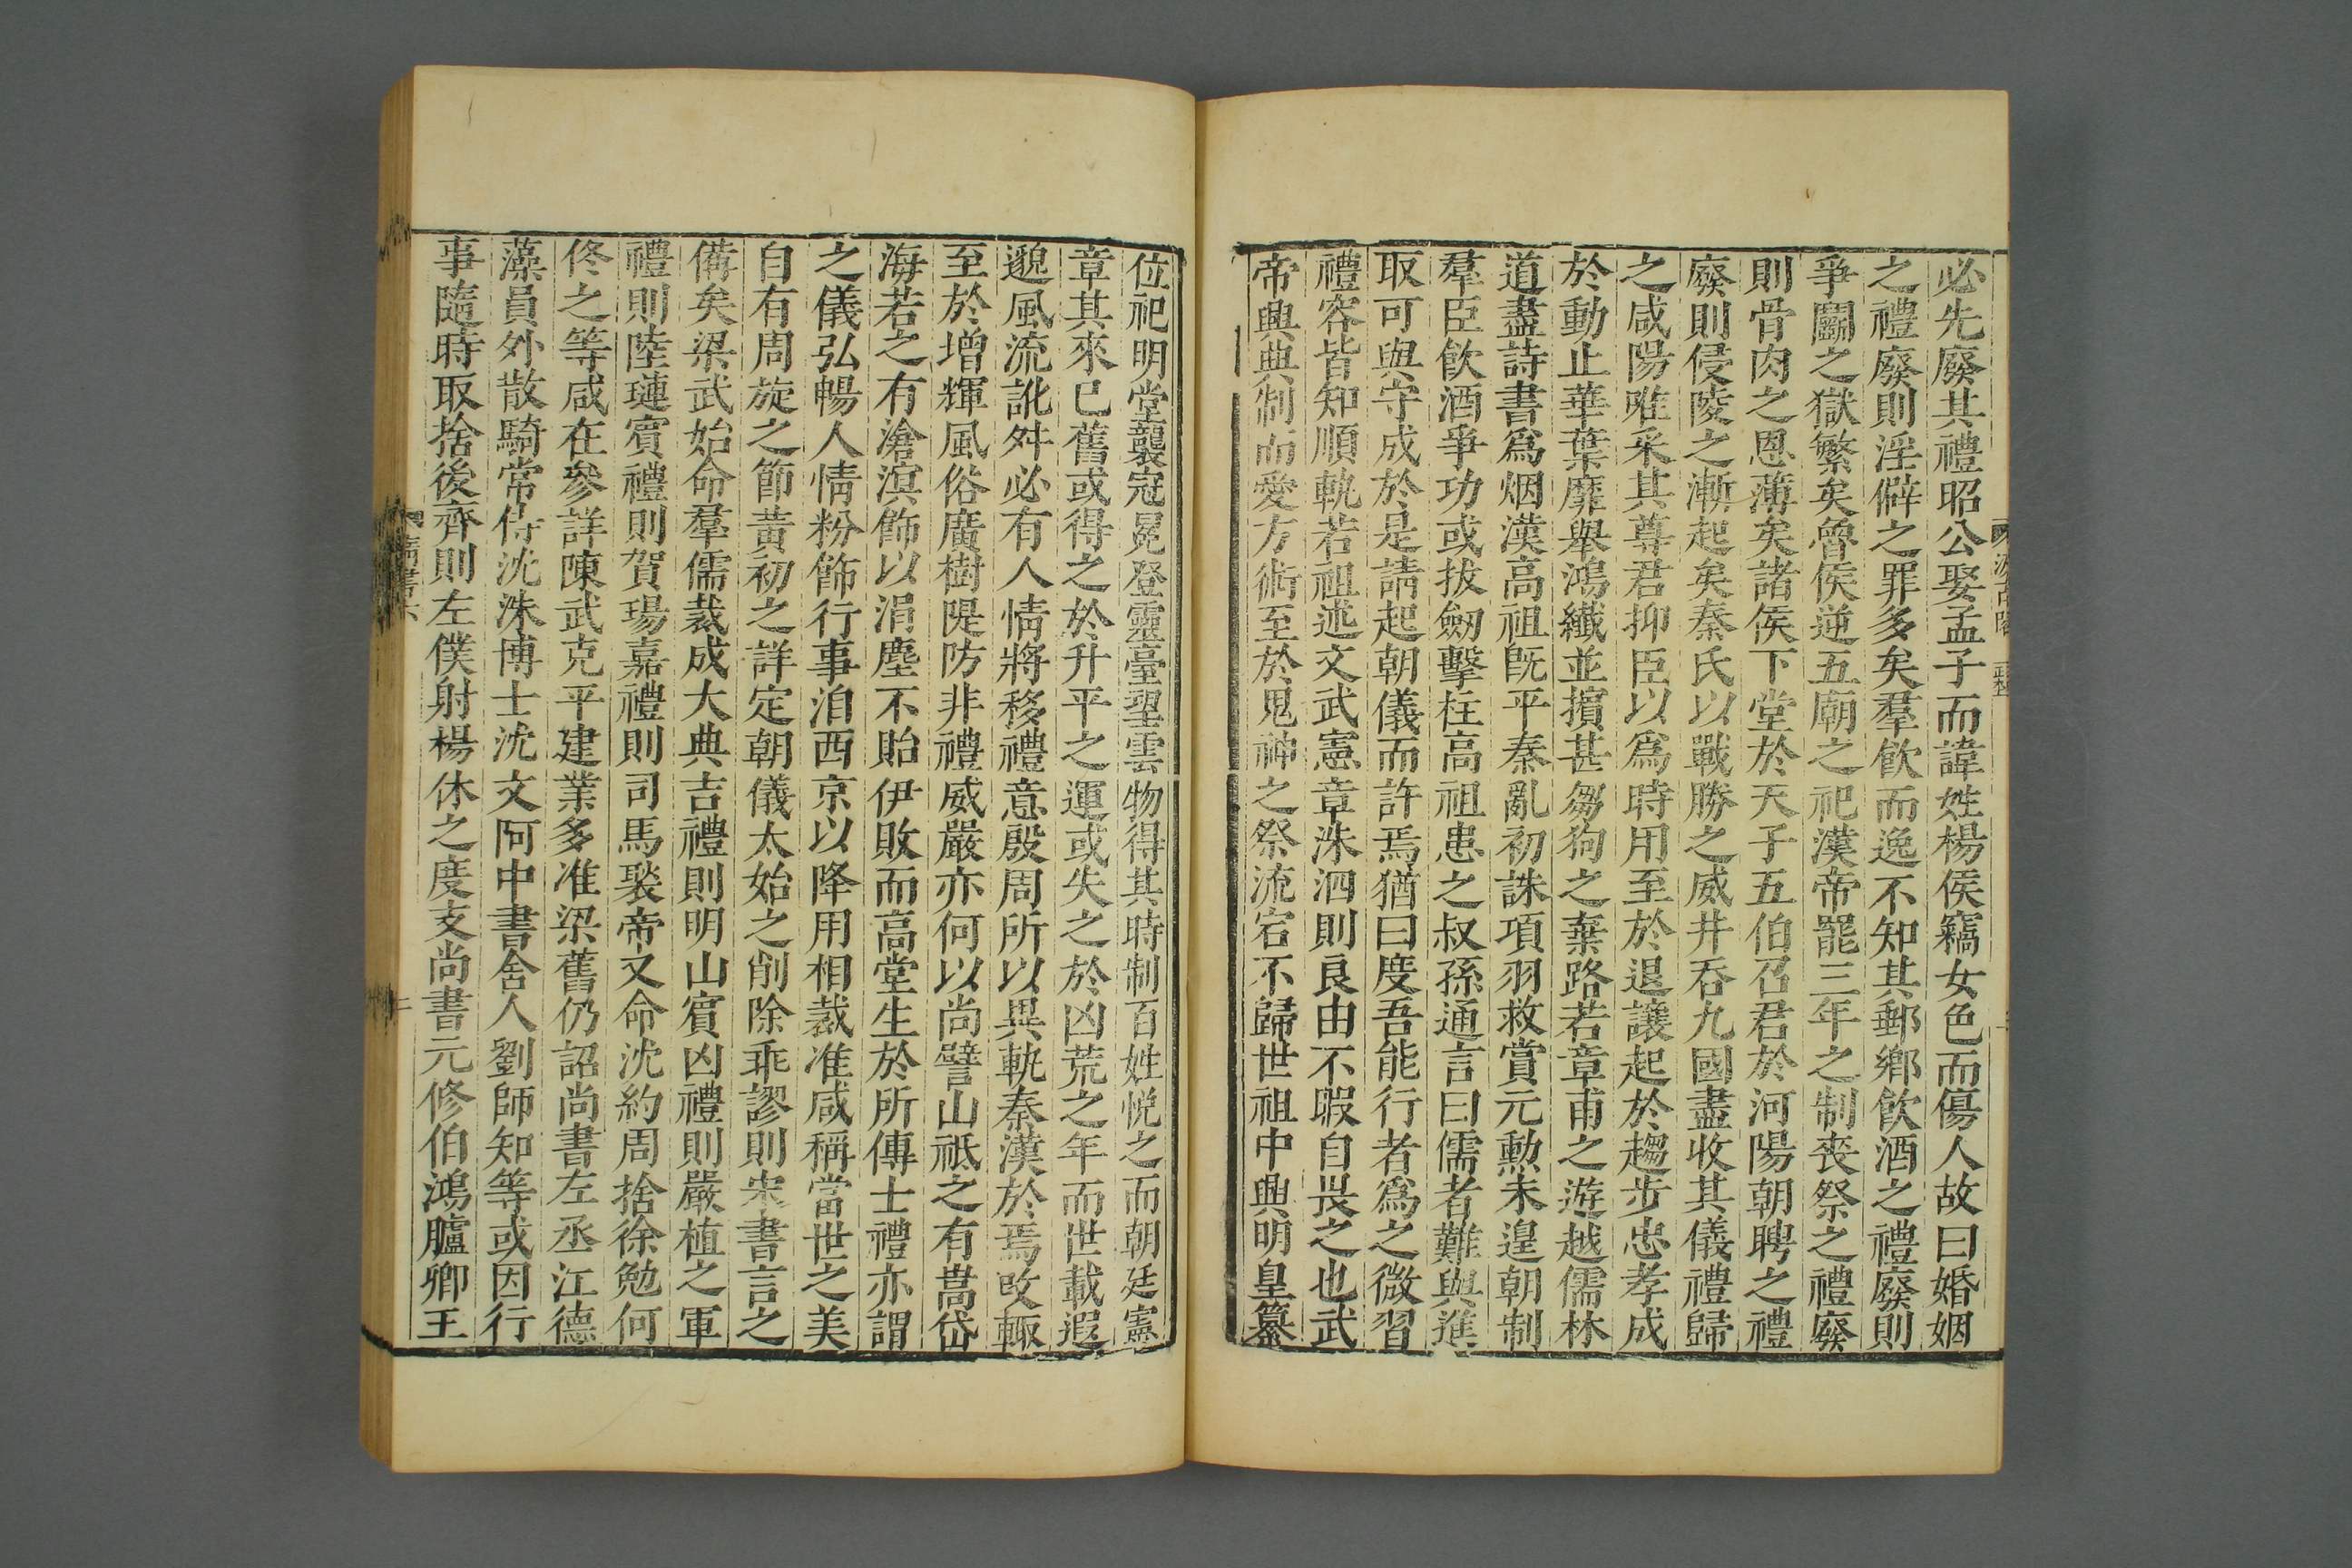 必先廢其禮昭公娶孟子而諱姓楊侯竊女色而傷人故曰婚姻
之禮廢則淫僻之罪多矣羣飲而逸不知其郵鄉飲酒之禮廢則
爭鬭之獄繁矣魯侯逆五廟之祀漢帝罷三年之制喪祭之禮廢
則骨肉之恩薄矣諸侯下堂於天子五伯召君於河陽朝聘之禮
廢則侵陵之漸起矣秦氏以戰勝之威并吞九國盡收其儀禮歸
之咸陽唯采其尊君抑臣以爲時用至於退讓起於趨步忠孝成
於動止華葉靡舉鴻纖並擯甚芻狗之棄路若章甫之遊越儒林
道盡詩書爲烟漢高祖旣平秦亂初誅項羽救賞元勳未遑朝制
羣臣飲酒爭功或拔劒擊柱高祖患之叔孫通言曰儒者難與進
取可與守成於是請起朝儀而許焉猶曰度吾能行者爲之微習
禮容皆知順軌若祖述文武憲章洙泗則良由不暇自畏之也武
帝興典制而愛方術至於鬼神之祭流宕不歸世祖中興明皇纂
位祀明堂襲冠冕登靈臺望雲物得其時制百姓悅之而朝廷憲
章其來已舊或得之於升平之運或失之於凶荒之年而世載遐
邈風流訛舛必有人情將移禮意殷周所以異軌秦漢於焉改轍
至於增輝風俗廣樹隄防非禮威嚴亦何以尚譬山祇之有嵩岱
海若之有滄溟飾以涓塵不貽伊敗而高堂生於所傳士禮亦謂
之儀弘暢人情粉飾行事洎西京以降用相裁准咸稱當世之美
自有周旋之節黃初之詳定朝儀太始之削除乖謬則宋書言之
備矣梁武始命羣儒裁成大典吉禮則明山賓凶禮則嚴植之軍
禮則陸璉賓禮則賀瑒嘉禮則司馬褧帝又命沈約周捨徐勉何
佟之等咸在參詳陳武克平建業多准梁舊仍詔尚書左丞江德
藻員外散騎常侍沈洙博士沈文阿中書舍人劉師知等或因行
事隨時取捨後齊則左僕射楊休之度支尚書元修伯鴻臚卿王